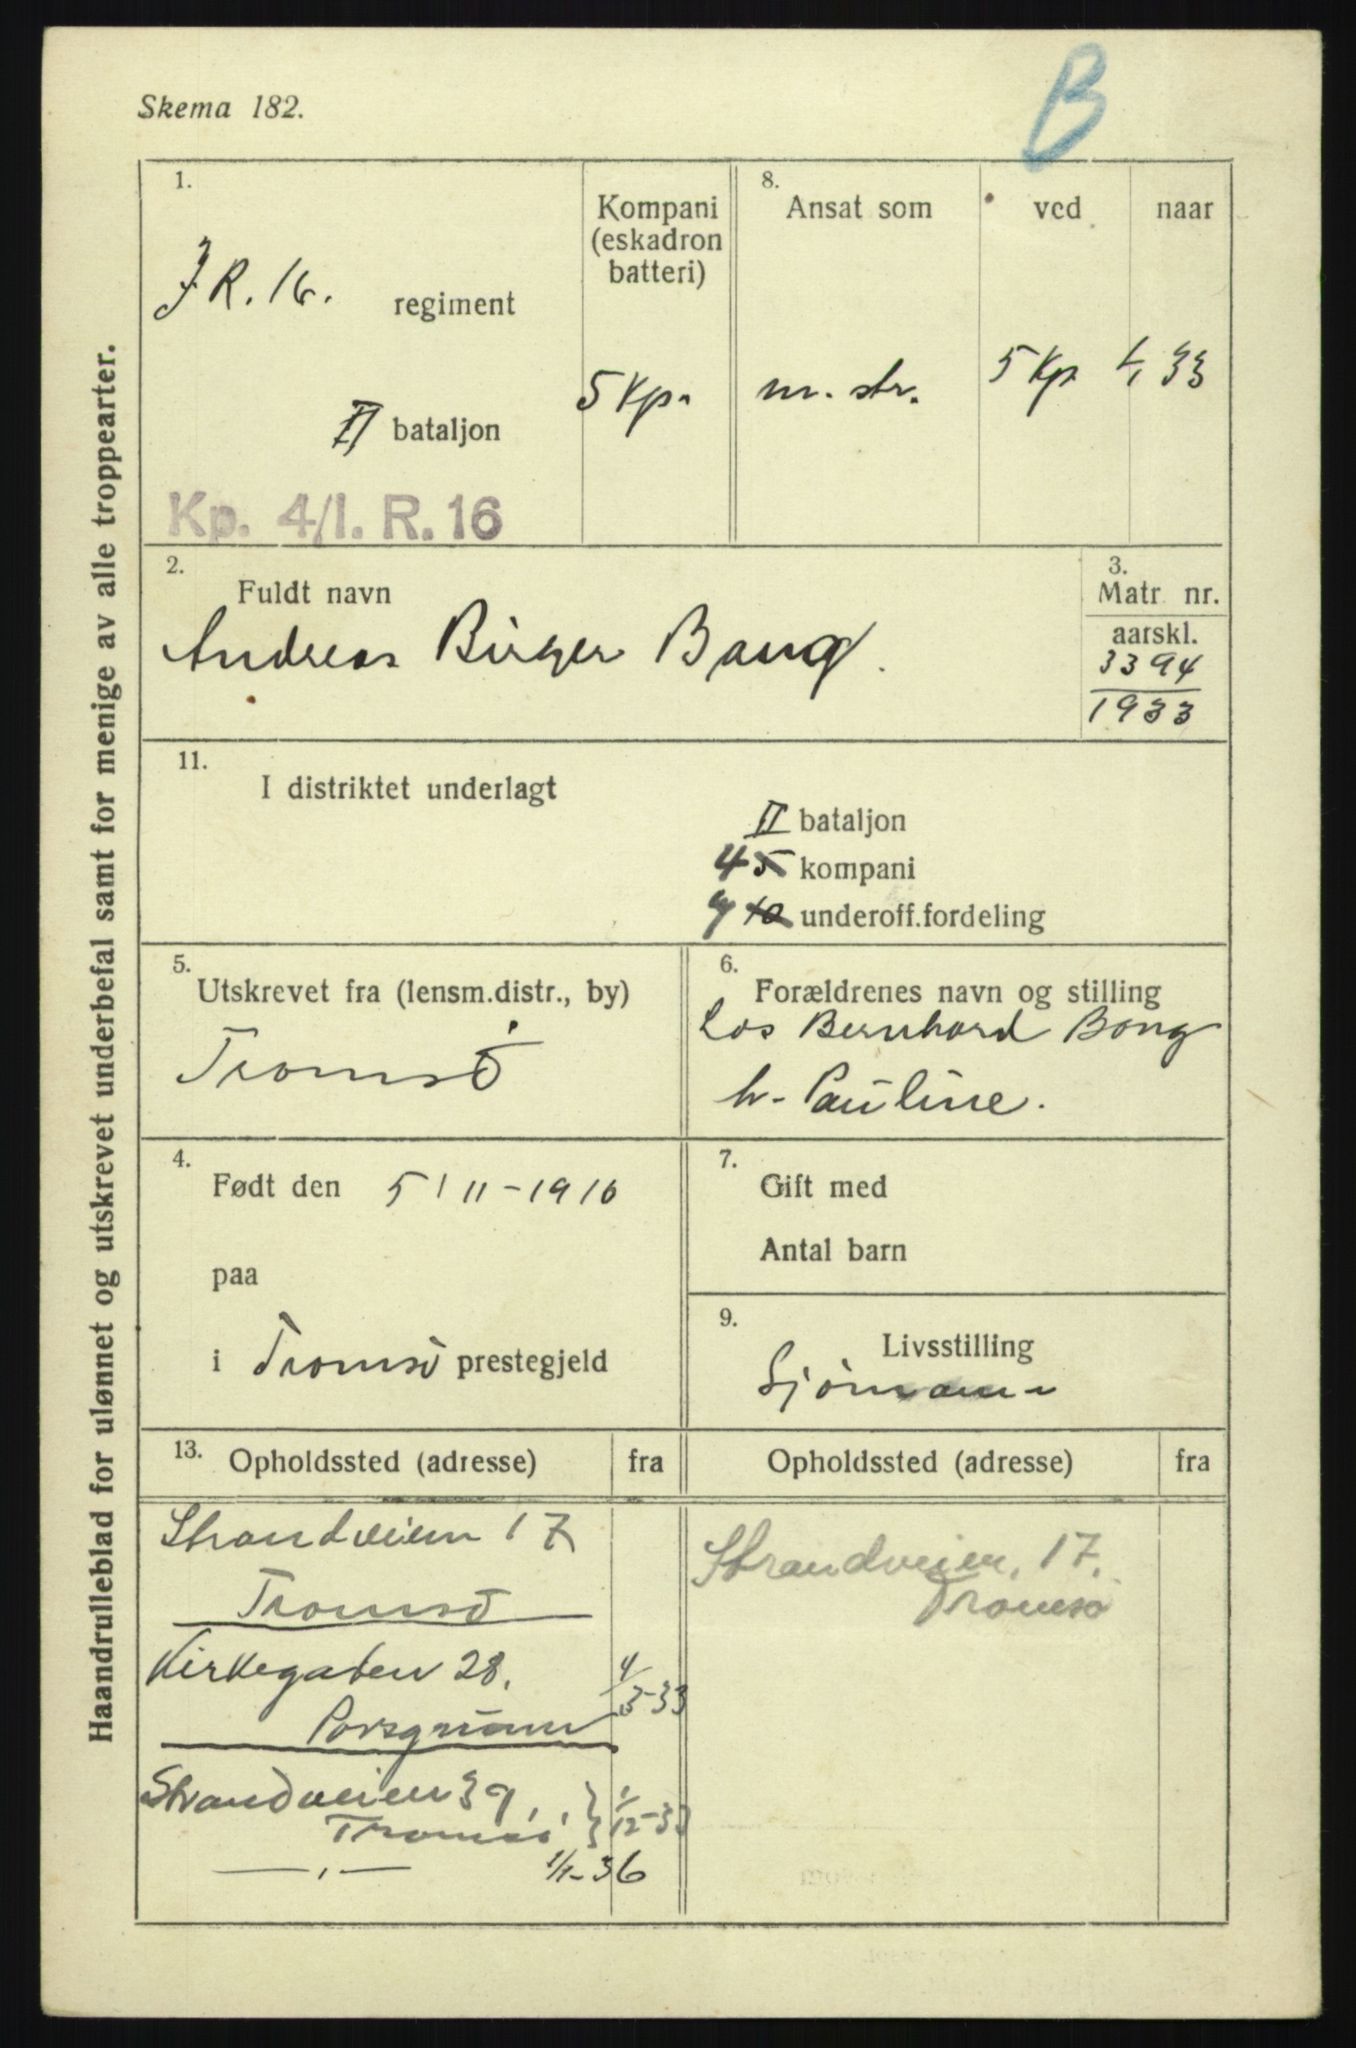 B
Skema 182.
Haandrulleblad for ulønnet og utskrevet underbefal samt for menige av alle troppearter.
1.
J.R. 16. regiment
II bataljon
Kp. 4/I. R. 16
Kompani
(eskadron
batteri)
5 Kp.
8.
Ansat som ved naar
m. str. 5 Kp 1/1 33
2.
Fuldt navn
Andreas Birger Bang.
3.
Matr nr.
aarskl.
3394
1933
11.
I distriktet underlagt
II bataljon
4 5 kompani
9 10 underoff.fordeling
5.
Utskrevet fra (lensm.distr., by)
Tromsö
6.
Forældrenes navn og stilling
Los Bernhard Bang
h. Pauline.
4.
Født den 5/11-1910
paa
i Tromsö prestegjeld
7.
Gift med
Antal barn
9.
Livsstilling
Sjömann
13.
Opholdssted (adresse) fra Opholdssted (adresse) fra
Strandveien 17
Tromsö
Kirkegaten 28. 4/3-33
Porsgrunn
Strandveien 39, } 1/12-33
Tromsö
—,,— 1/1-36
Strandveien. 17.
Tromsö